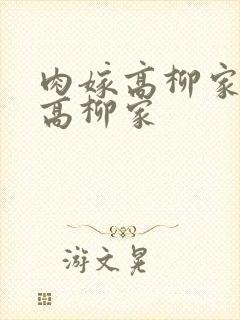 肉嫁高柳家
高柳家
游文晃